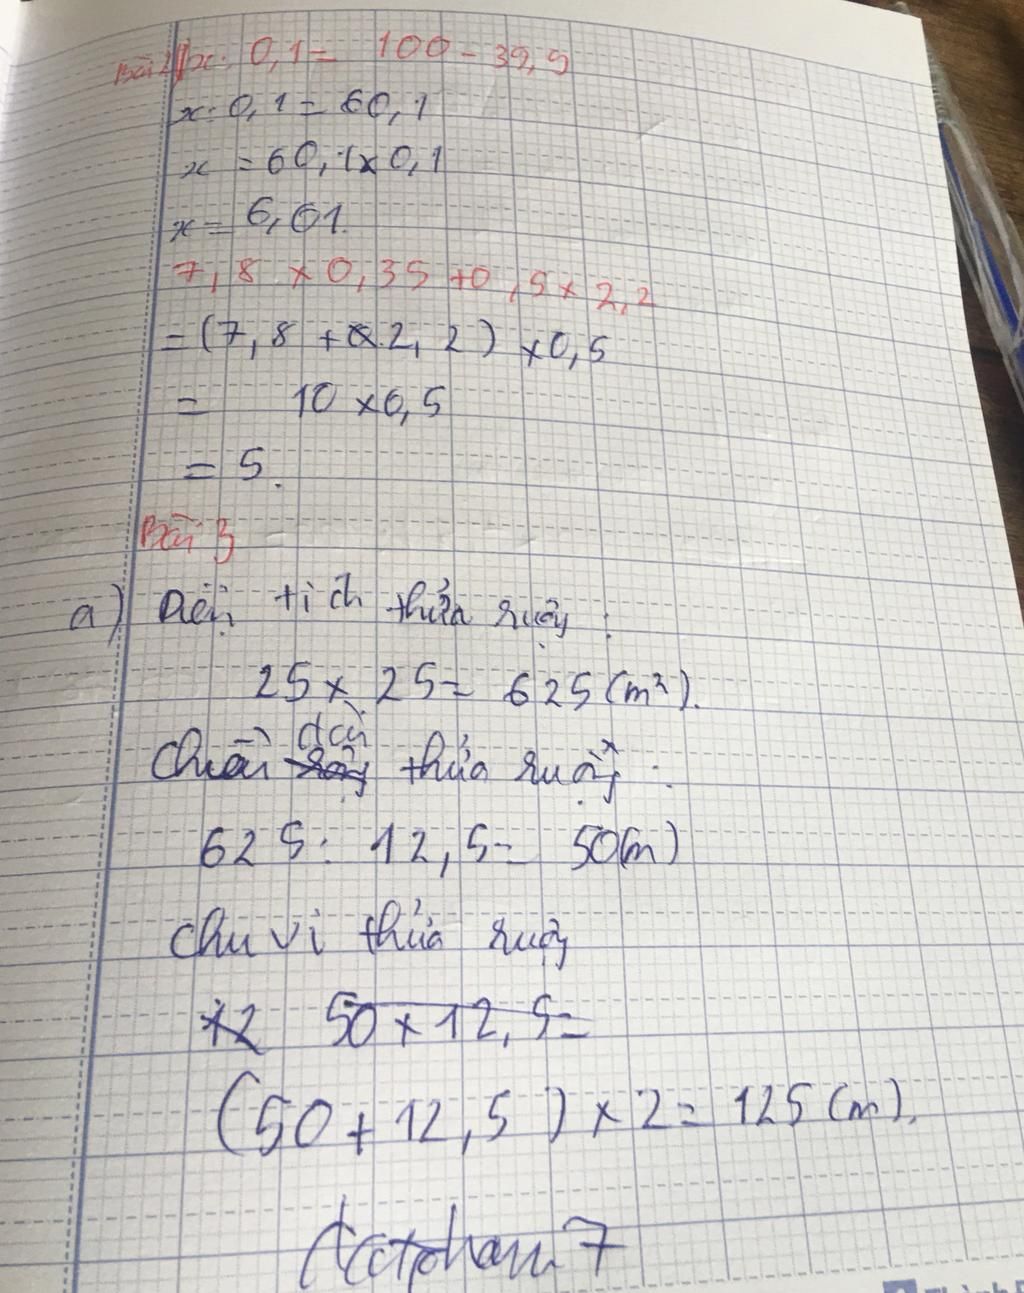 Bài 2) x : 0,1 = 100 - 39,9
x : 0,1 = 60,1
x = 60,1 x 0,1
x = 6,01.
7,8 x 0,35 + 0,5 x 2,2
= (7,8 + 2,2) x 0,5
= 10 x 0,5
= 5.
Bài 3
a) Diện tích thửa ruộng :
25 x 25 = 625 (m²).
Chiều dài thửa ruộng :
625 : 12,5 = 50(m)
Chu vi thửa ruộng
x2 50 x 12,5 =
(50 + 12,5) x 2 = 125 (m).
7